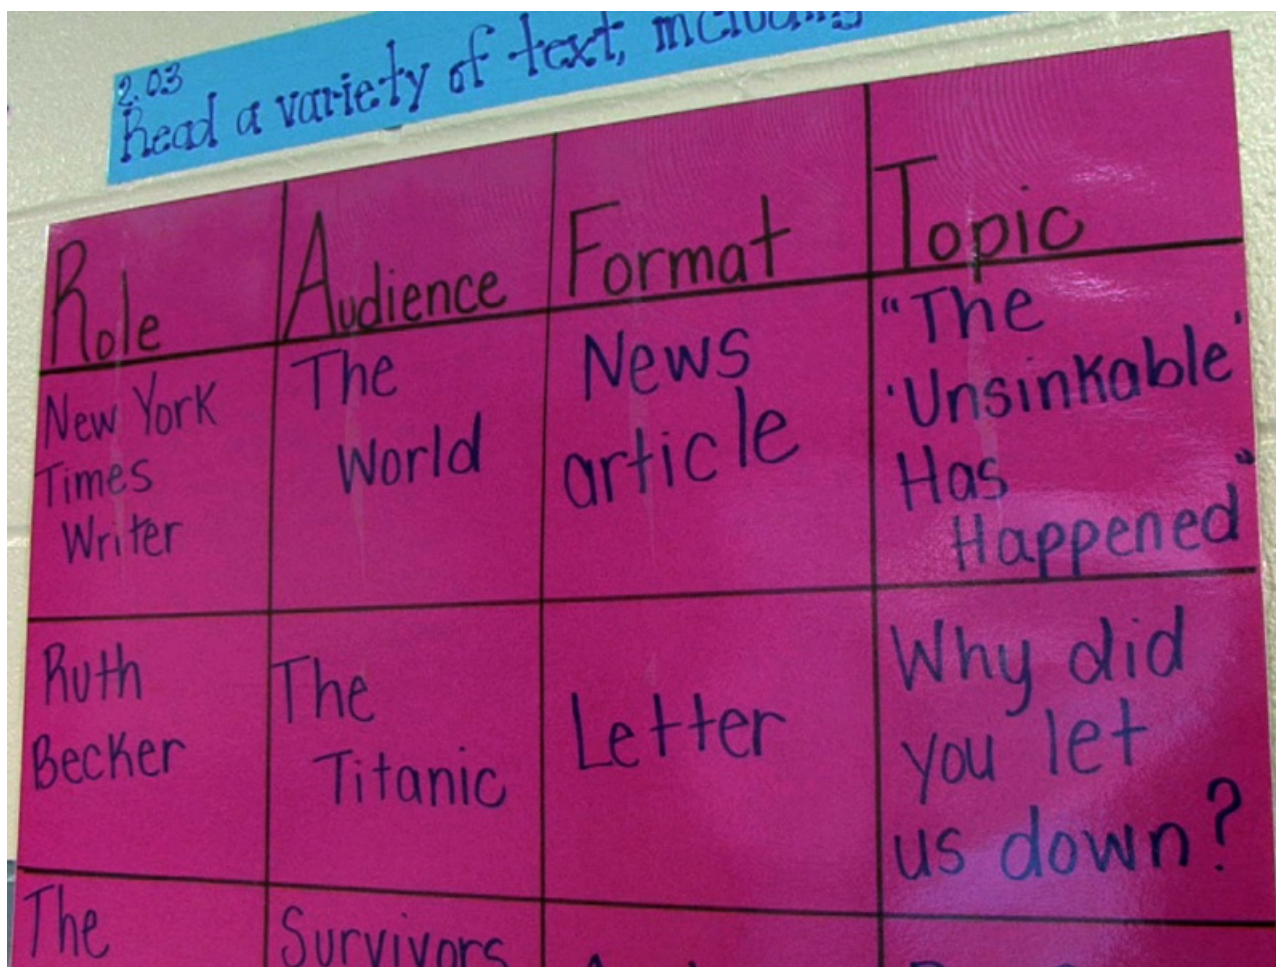 2.03
Read a variety of text, including
Role Audience Format Topic
New York
Times
Writer
The
World
News
article
"The
'Unsinkable'
Has
Happened"
Ruth
Becker
The
Titanic
Letter
Why did
you let
us down?
The
Survivors